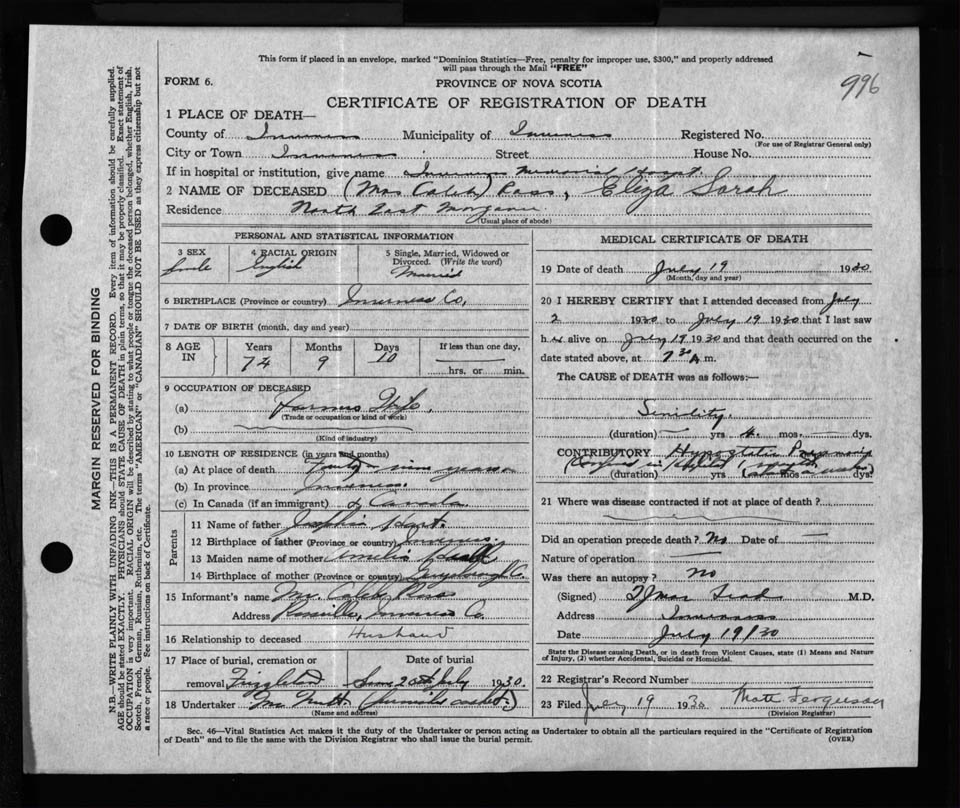 This form if placed in an envelope, marked "Dominion Statistics—Free, penalty for improper use, $300," and properly addressed
will pass through the Mail "FREE"
996
FORM 6.
PROVINCE OF NOVA SCOTIA
CERTIFICATE OF REGISTRATION OF DEATH
1 PLACE OF DEATH—
County of Inverness Municipality of Inverness Registered No.
(For use of Registrar General only)
City or Town Inverness Street House No.
If in hospital or institution, give name Inverness Memorial Hospt.
2 NAME OF DECEASED (Mrs Caleb) Ross, Eliza Sarah
Residence North East Margaree
(Usual place of abode)
PERSONAL AND STATISTICAL INFORMATION
3 SEX
4 RACIAL ORIGIN
English
5 Single, Married, Widowed or
Divorced. (Write the word)
Married
6 BIRTHPLACE (Province or country) Inverness Co.
7 DATE OF BIRTH (month, day and year)
8 AGE IN
Years Months Days If less than one day,
74 9 10
hrs. or min.
9 OCCUPATION OF DECEASED
(a) Farmers Wife,
(Trade or occupation or kind of work)
(b)
(Kind of industry)
10 LENGTH OF RESIDENCE (in years and months)
(a) At place of death nine years
(b) In province Inverness
(c) In Canada (if an immigrant) of Canada
Parents
11 Name of father Hart.
12 Birthplace of father (Province or country) Inverness
13 Maiden name of mother
14 Birthplace of mother (Province or country) Guysborough C.
15 Informant's name Mr. Caleb Ross
Address Rossville, Inverness Co.
16 Relationship to deceased Husband
17 Place of burial, cremation or Date of burial
removal 20th July 1930.
18 Undertaker
(Name and address)
MEDICAL CERTIFICATE OF DEATH
19 Date of death July 19 1930
(Month, day and year)
20 I HEREBY CERTIFY that I attended deceased from July
2 1930 to July 19 1930 that I last saw
her alive on July 19 1930 and that death occurred on the
date stated above, at 7 30 A.m.
The CAUSE of DEATH was as follows:—
Senility.
(duration) yrs. mos. dys.
CONTRIBUTORY Hypostatic Pneumonia
(duration) yrs. mos. dys.
21 Where was disease contracted if not at place of death?
Did an operation precede death? No Date of
Nature of operation
Was there an autopsy? no
(Signed) M.D.
Address Inverness
Date July 19/30
State the Disease causing Death, or in death from Violent Causes, state (1) Means and Nature
of Injury, (2) whether Accidental, Suicidal or Homicidal.
22 Registrar's Record Number
23 Filed July 19 1930 Matt Ferguson
(Division Registrar)
Sec. 46—Vital Statistics Act makes it the duty of the Undertaker or person acting as Undertaker to obtain all the particulars required in the "Certificate of Registration
of Death" and to file the same with the Division Registrar who shall issue the burial permit.
(OVER)
MARGIN RESERVED FOR BINDING
N.B.—WRITE PLAINLY WITH UNFADING INK—THIS IS A PERMANENT RECORD. Every item of information should be carefully supplied.
AGE should be stated EXACTLY. PHYSICIANS should STATE CAUSE OF DEATH in plain terms, so that it may be properly classified. Exact statement of
OCCUPATION is very important. A RACIAL ORIGIN will be described by stating to what people or tongue the deceased person belonged, whether English, Irish,
Scotch, French, German, Russian, Ruthenian, etc. The terms "AMERICAN" or "CANADIAN" SHOULD NOT BE USED as they express citizenship but not
a race or people. See instructions on back of Certificate.